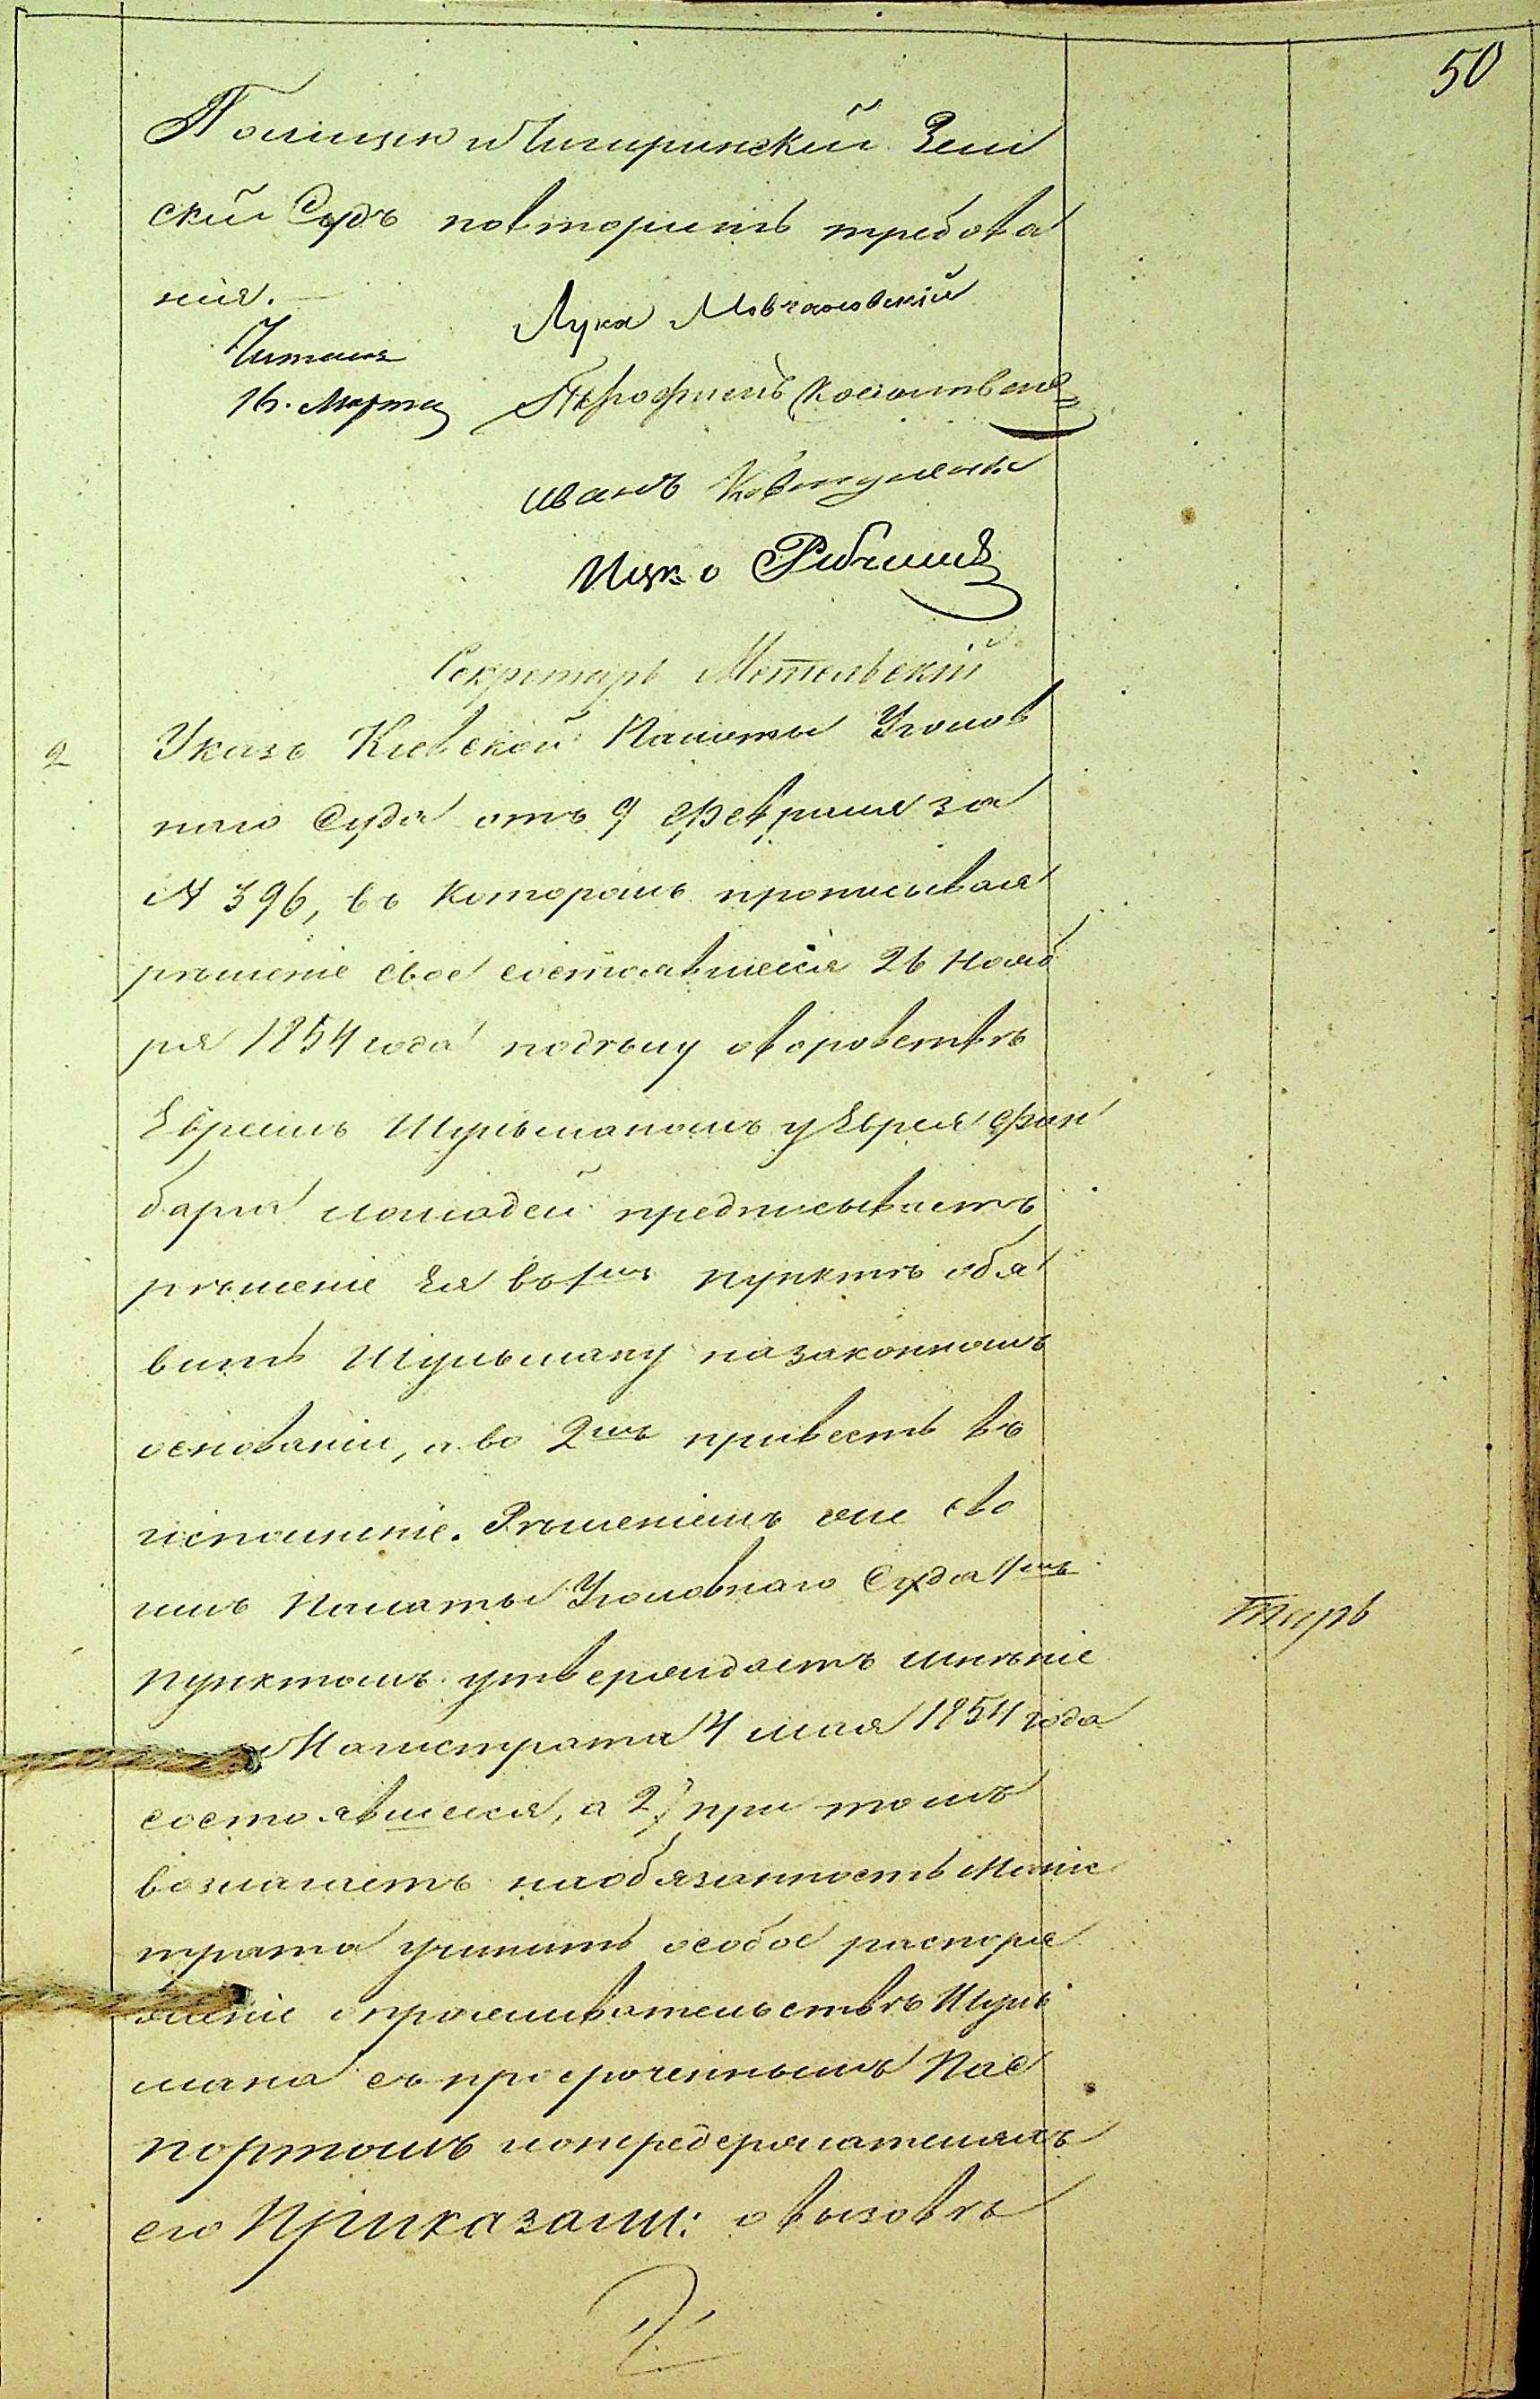 50
Полицiю и Чигиринскiй Зем
скiй Судъ повторить требова
нiя.
Лука Мовчановскiй
Читалъ
16. Марта
Иванъ Ковтуненко
Ицко
Секретарь Метельскiй
2
Указъ Кiевской Палаты Уголов
наго Суда отъ 9 Февраля за
№ 396, въ которомъ прописывая
рѣшенiе свое состоявшееся 26 Нояб
ря 1854 года подѣлу о воровствѣ
Евреемъ Шульманомъ у Еврея Фин
барга лошадей предписываетъ
рѣшенiе Ея въ 1мъ пунктѣ обя
вить Шульману на законномъ
основанiи, а во 2мъ привесть въ
исполненiе. Рѣшенiемъ симъ сво
имъ Палаты Уголовнаго Суда 1мъ
пунктомъ утверждаетъ мнѣнiе
Магистрата 4 мая 1854 года
состоявшееся, а 2) при томъ
возлагаетъ на обязанность Магис
трата учинить особое распоря
женiе о проживательствѣ Шуль
мана съ просроченнымъ Пас
портомъ и о передержателяхъ
его Приказали: о вызовѣ
тарь